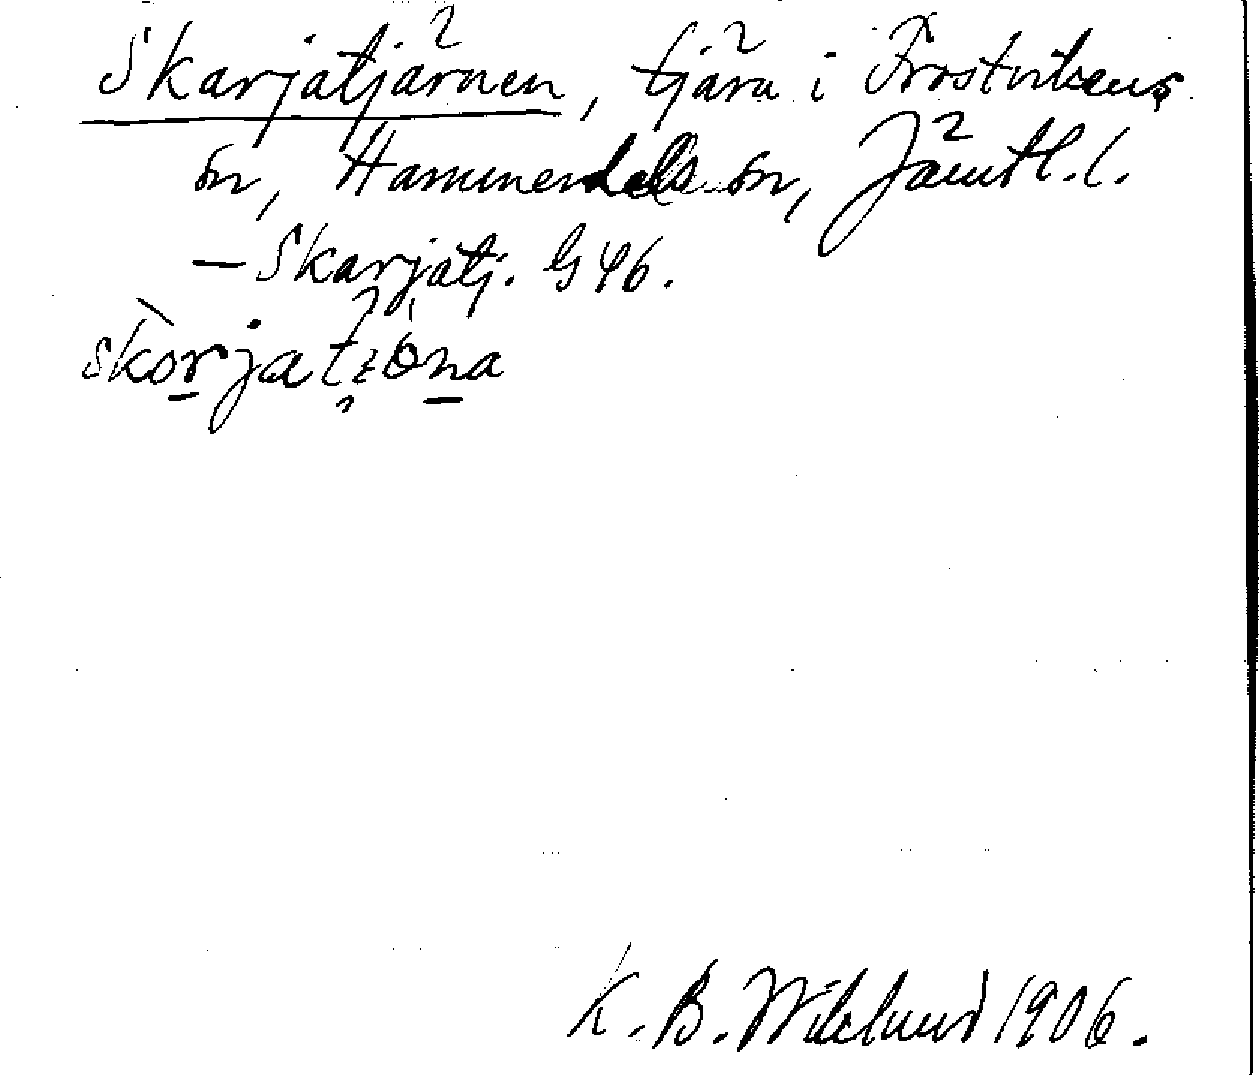 Skarjatjärnen, tjärn i Frostvikens
sn, Hammerdals sn, Jämtl. l.
– Skarjatj. G 46.
K. B. Wiklund 1906.